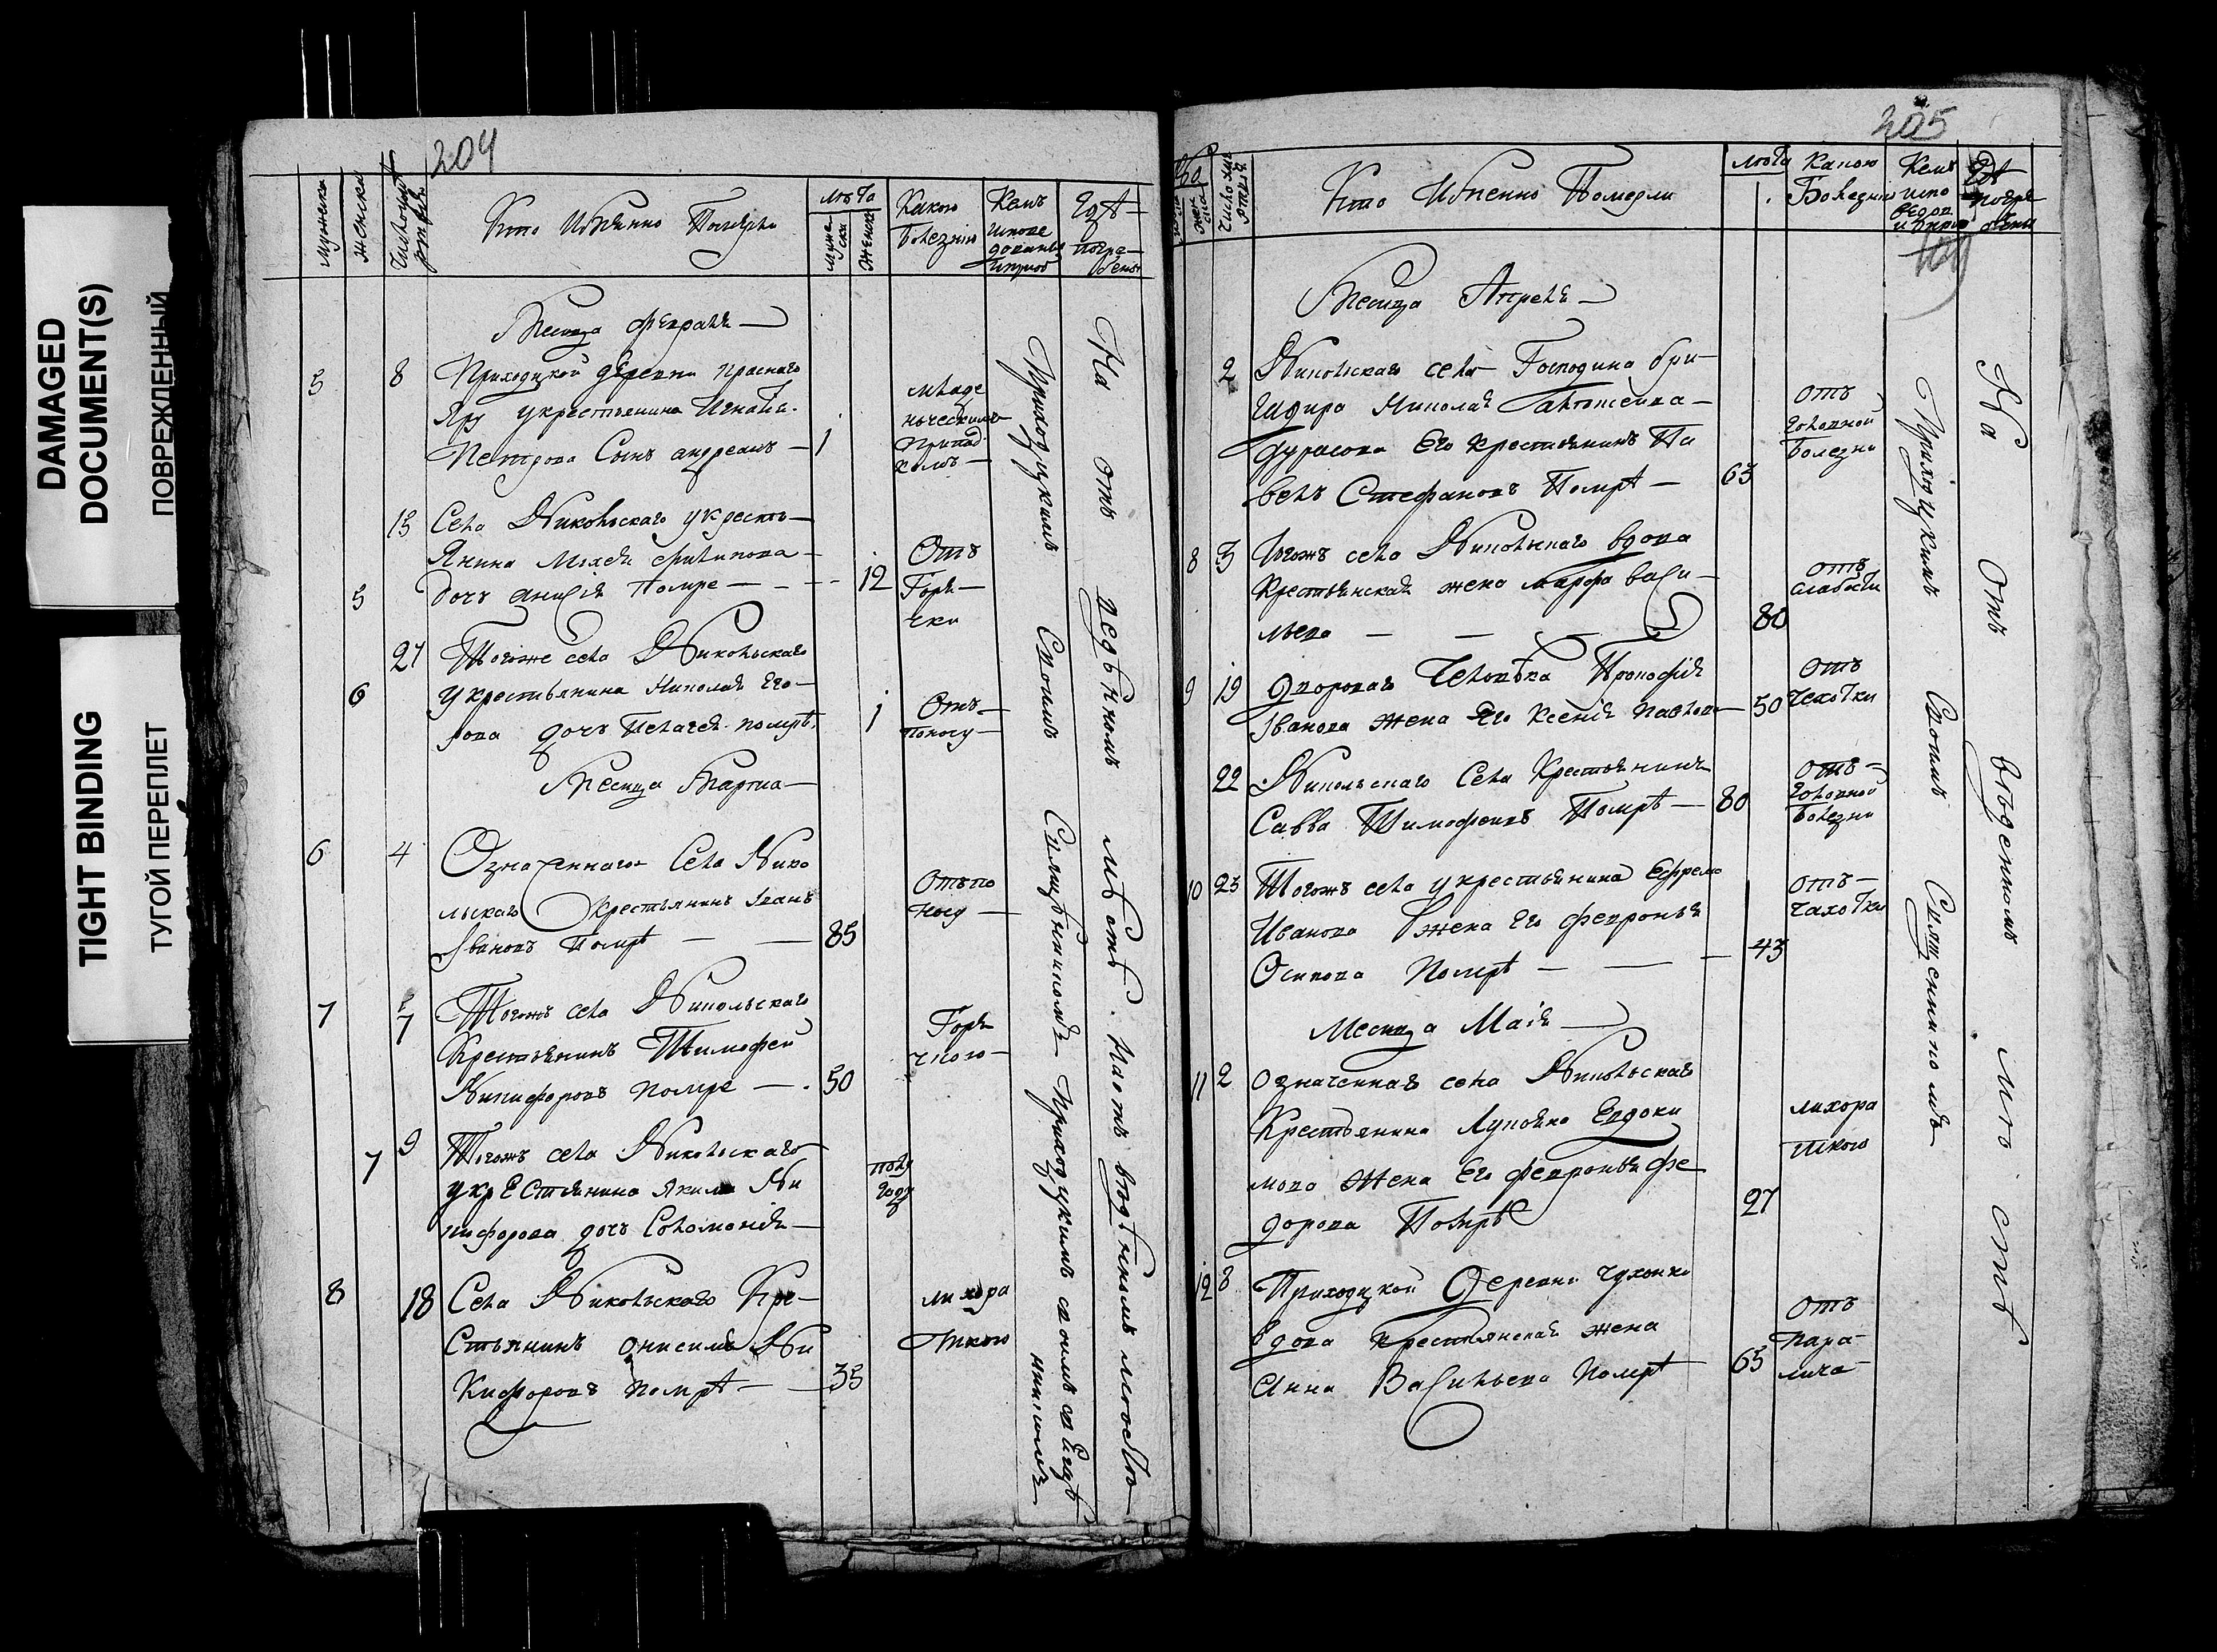 DAMAGED
DOCUMENT(S)
ПОВРЕЖДЕННЫЙ
TIGHT BINDING
ТУГОЙ ПЕРЕПЛЕТ
204
Мужеска
Женска
Кто Имянно Померли
лѣта
муже
ска
женск
Какою
болезнию
Кемъ
испове
дованы
Гдѣ
погре
бены
Месяца февраля
5 8 Приходцкой деревни Краснаго
Яру у крестьянина Игнатья
Петрова Сынъ андреянъ 1
младе
нческимъ
припад
комъ
15 Села Никольскаго у кресть
янина Мокея филипова
5 дочь анисiя Помре 12
Отъ
Горя
чки
27 Тогоже села Никольскаго
6 у крестьянина Николая Его
рова дочь Пелагея помрѣ 1
Отъ
поносу
Месяца Марта
6 4 Означеннаго Села Нико
льскаго Крестьянинъ Iванъ
Iвановъ Помрѣ 85
Отъ по
носу
7 7 Тогожъ села Никольскаго
Крестьянинъ Тимофей
Никифоровъ помре 50
Горя
чкою
7 9 Тогожъ села Никольскаго
у крестьянина Якима Ни
кифорова дочь Соломонiя
полу
году
8 18 Села Никольскаго Кре
стьянинъ онисимъ Ни
кифоровъ помрѣ 35
лихора
ткою
Приходцкимъ Своимъ Священникомъ Приходцкимъ своимъ священ
никомъ
На отъ веденномъ мѣстѣ. На отъ веденномъ месте
205
Кто Имѣнно Померли
лѣта
Какою
Болезнию
Кемъ
испо
Гдѣ
погре
бены
104
Месяца Апреля
2 Никольскаго села Господина бри
гадира Николая
дурасова Его крестьянинъ Па
велъ Стефановъ Помрѣ 63
отъ
головной
болезни
8 3 тогожъ села Никольскаго вдова
Крестьянская жена марфа васи
льева 80
отъ
слабости
9 19 дворовая Человѣка Прокофiя
Iванова жена Его Ксенiя павлова 50
отъ
чехотки
22 Никольскаго Села Крестьянинъ
Савва Тимофеевъ Помрѣ 80
отъ
головной
болезни
10 23 Тогожъ села у крестьянина Ефрема
Иванова жена Его февронья
Осипова помрѣ 43
отъ
чахотки
Месяца Маiя
11 2 означенная села Никольская
Крестьянина Лукояна Евдоки
мова жена Его февронья фе
дорова Помрѣ 27
лихора
ткою
12 8 Приходцкой Деревни чухонки
вдова крестьянская жена
Анна Васильева помрѣ 65
отъ
пара
лича
Приходцкимъ Своимъ Священникомъ
На отъ веденномъ месте